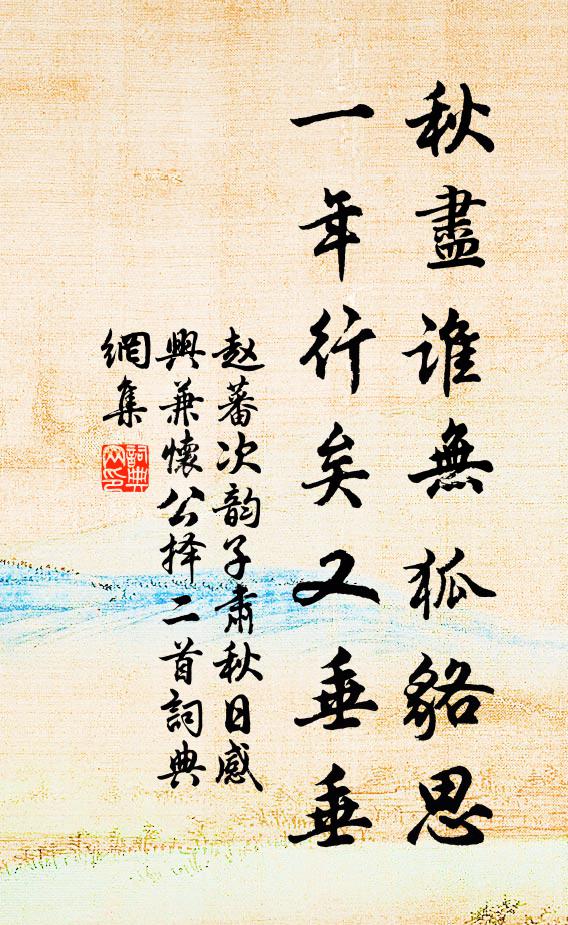 秋盡誰無狐貉思
一年行矣又垂垂
赵蕃次韵子肅秋日感
興兼懷公择二首詞典
網集
詞典
网印